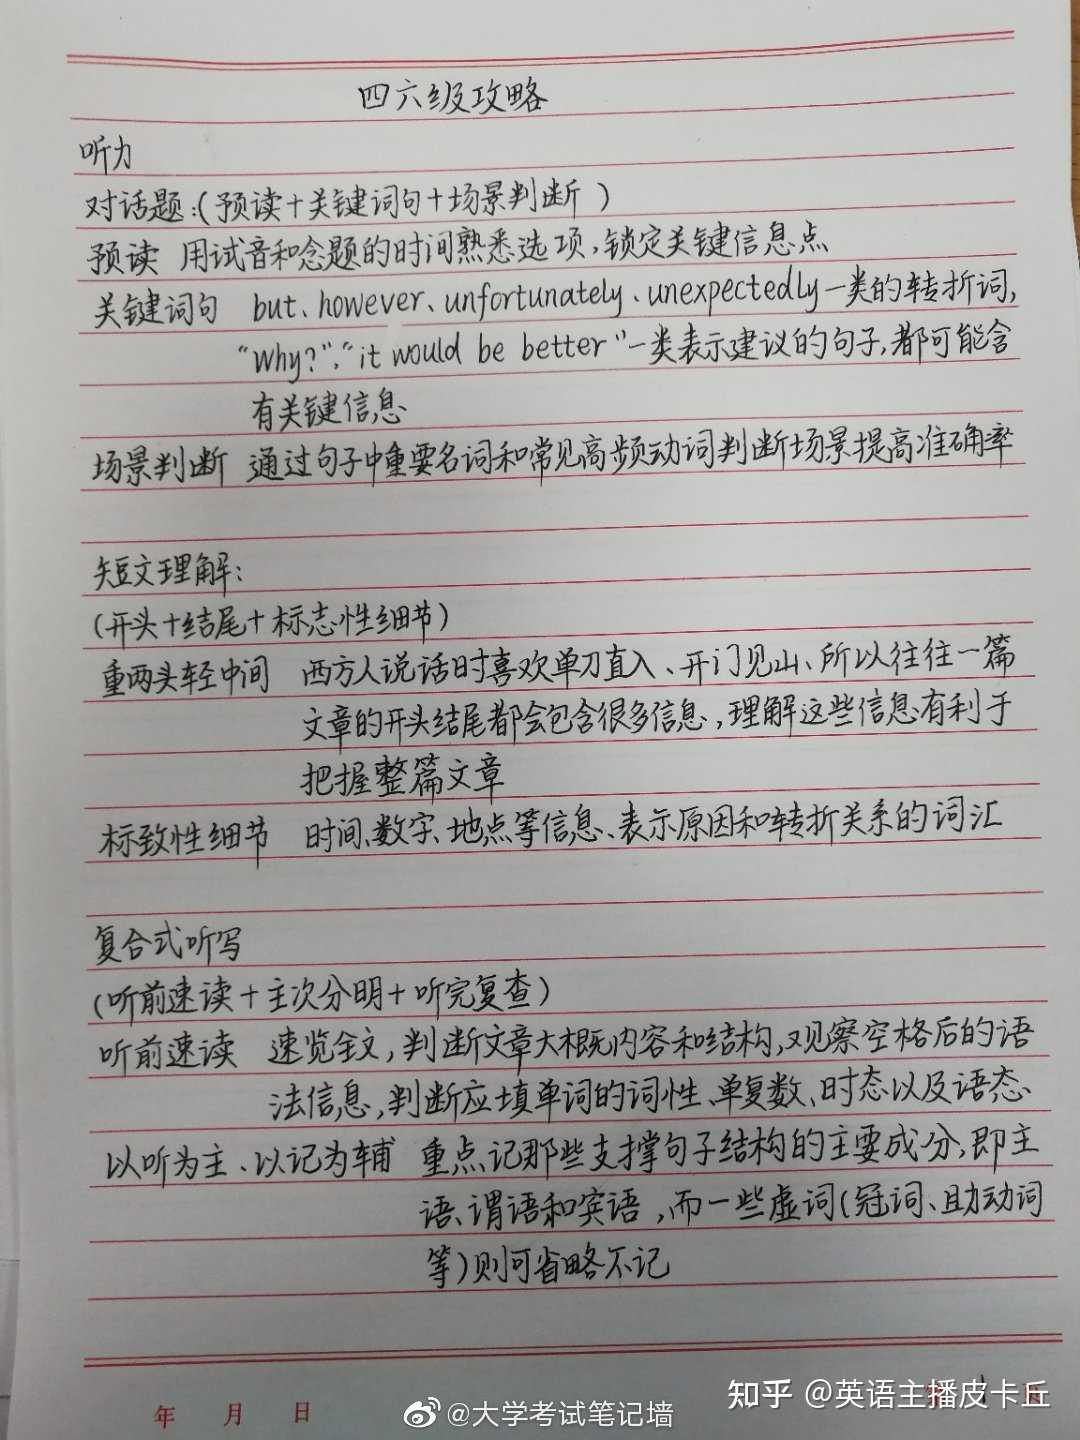 四六级攻略
听力
对话题:(预读+关键词句+场景判断)
预读 用试音和念题的时间熟悉选项,锁定关键信息点
关键词句 but、however、unfortunately、unexpectedly一类的转折词,
"Why?","it would be better"一类表示建议的句子,都可能含
有关键信息
场景判断 通过句子中重要名词和常见高频动词判断场景提高准确率
短文理解:
(开头+结尾+标志性细节)
重两头轻中间 西方人说话时喜欢单刀直入、开门见山、所以往往一篇
文章的开头结尾都会包含很多信息,理解这些信息有利于
把握整篇文章
标致性细节 时间、数字、地点等信息、表示原因和转折关系的词汇
复合式听写
(听前速读+主次分明+听完复查)
听前速读 速览全文,判断文章大概内容和结构,观察空格后的语
法信息,判断应填单词的词性、单复数、时态以及语态
以听为主、以记为辅 重点记那些支撑句子结构的主要成分,即主
语、谓语和宾语,而一些虚词(冠词、助动词
等)则可省略不记
年 月 日
@大学考试笔记墙
知乎 @英语主播皮卡丘